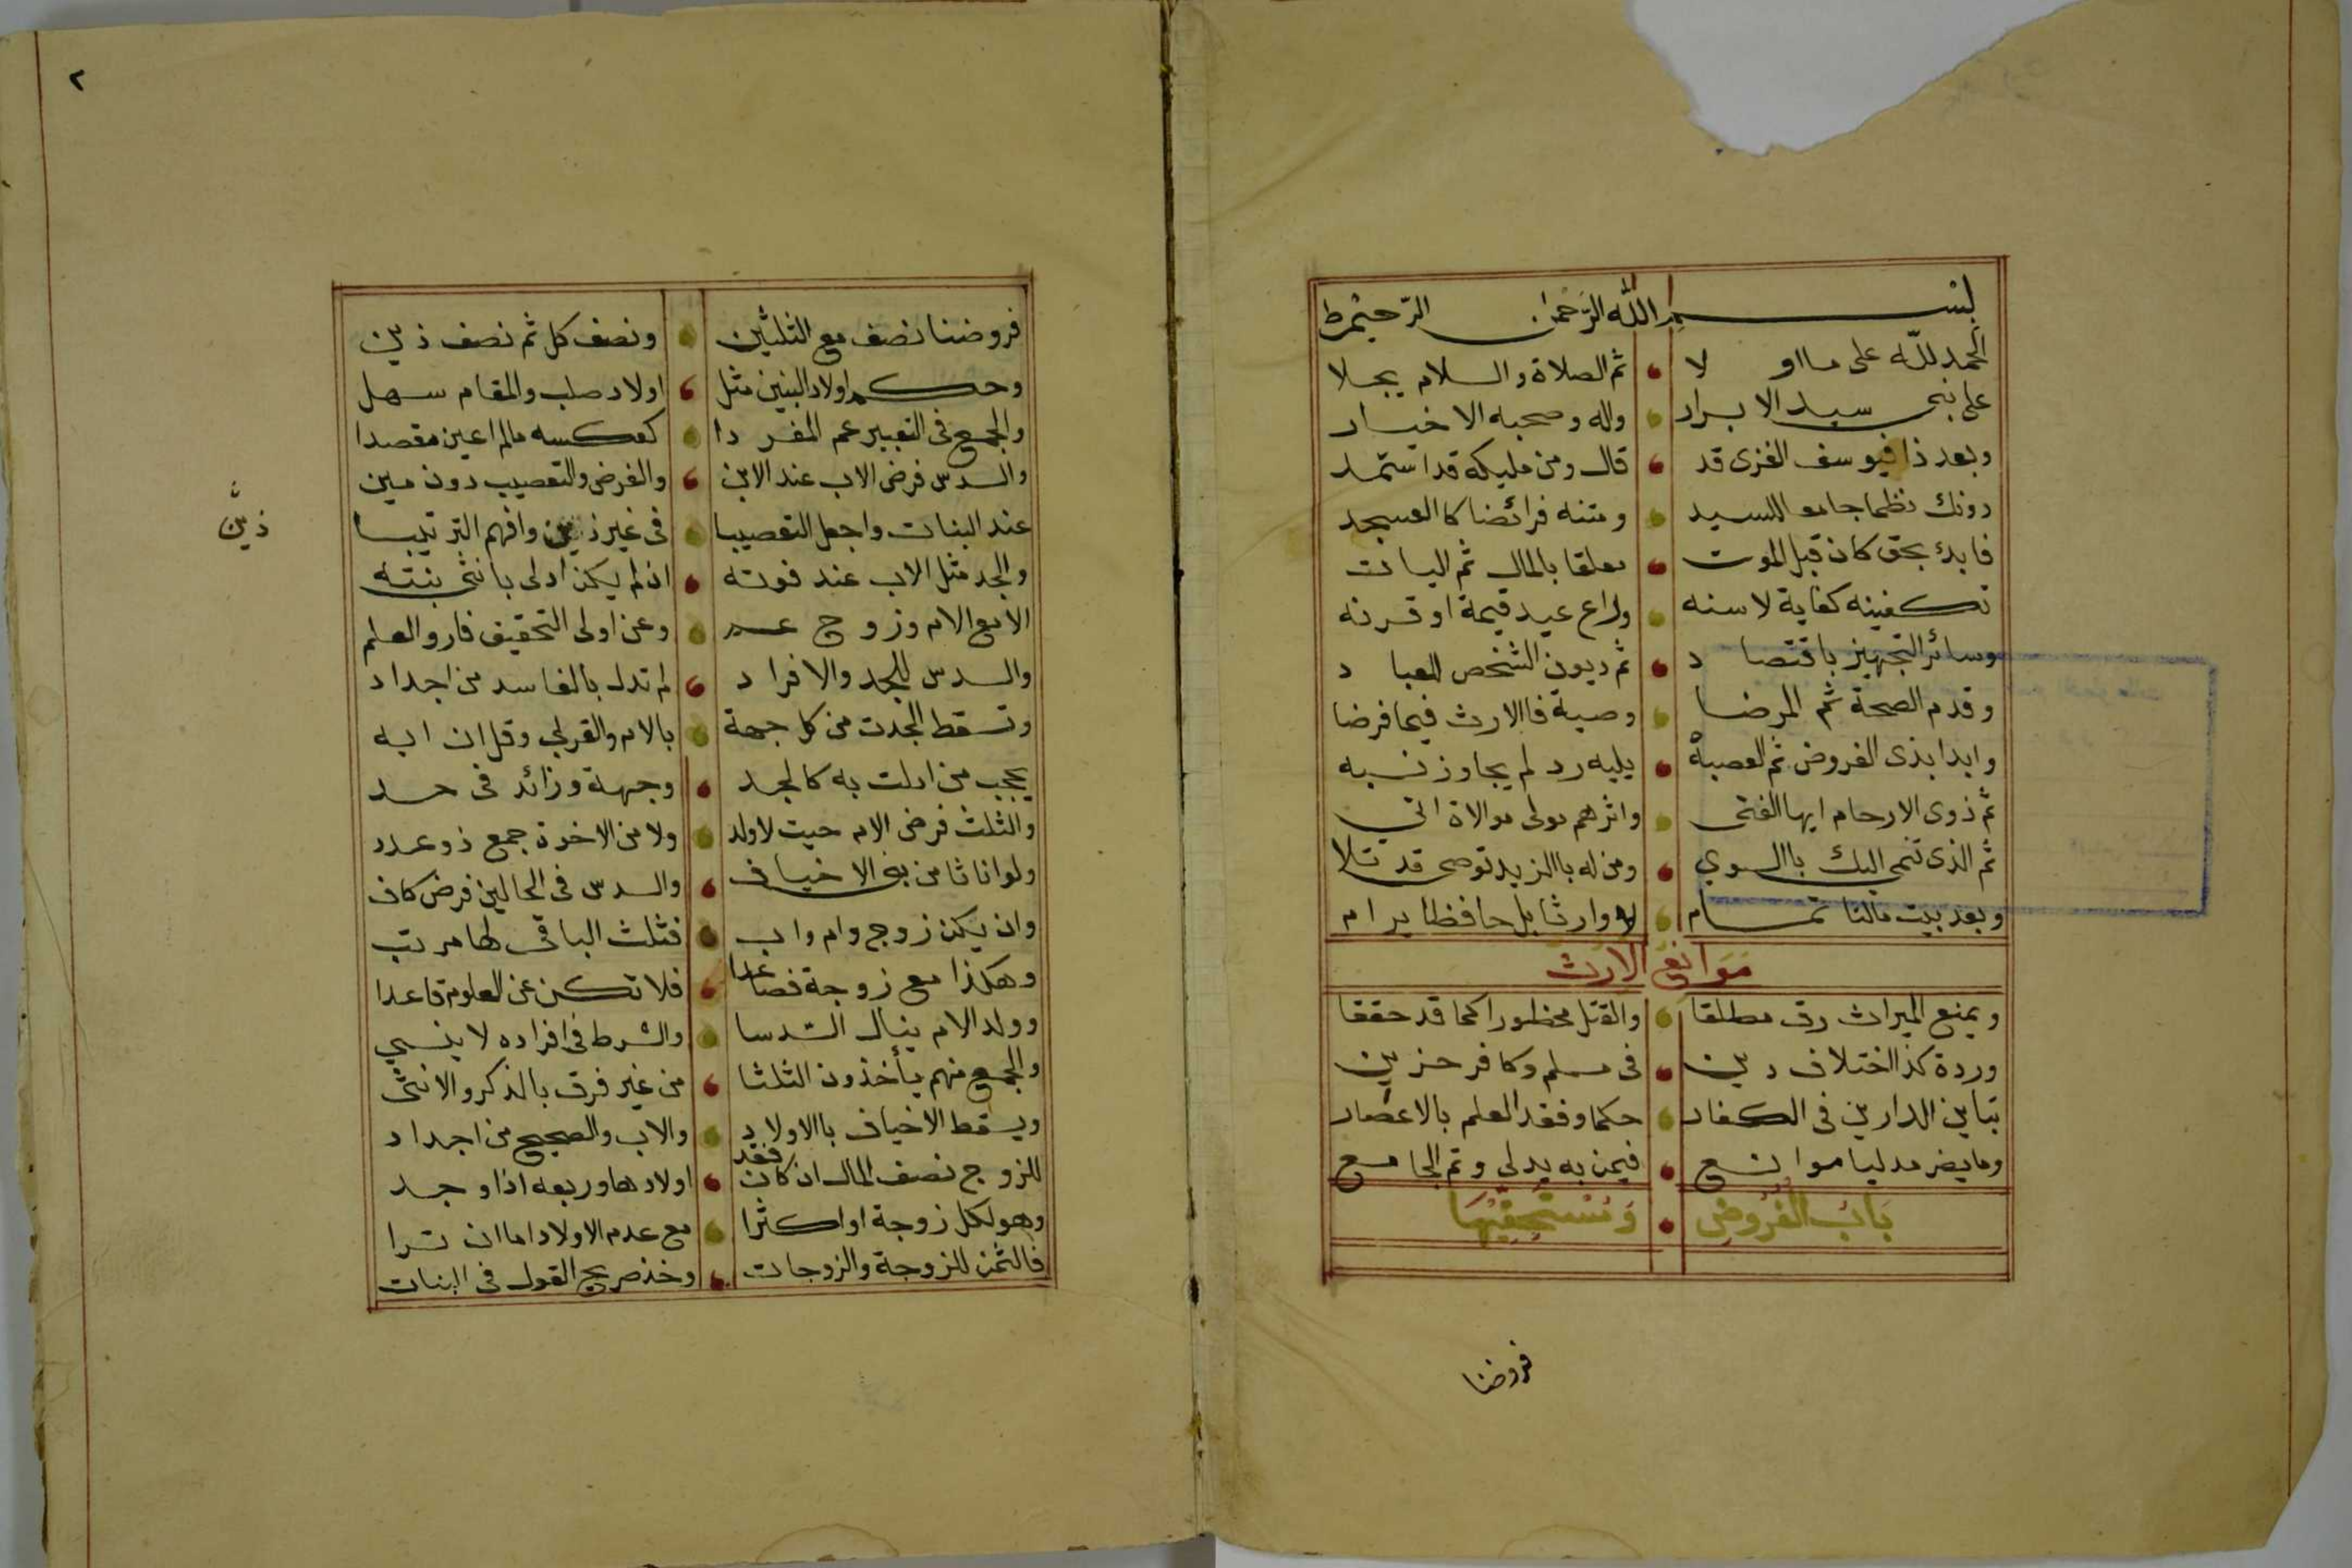 بسم الله الرحمن الرحيم ط
الحمد لله على ما او لا ثم الصلاة والسلام يجلا
على نبى سيد الابرار واله وصحبه الاخيار
وبعد ذا فيوسف الغزى قد قال ومن مليكه قد استمد
دونك نظما جامع السيد ومتنه فرائضا كالعسجد
فابدئ بحق كان قبل الموت معلقا بالمال ثم اليات
تكفينه كفاية لاسنه وراع عيد قيمة او قرنه
وسائر التجهيز باقتصاد ثم ديون الشخص للعباد
وقدم الصحة ثم المرضا وصية فاالارث فيما فرضا
وابدا بذى الفروض ثم العصبة يليه رد لم يجاوز نسبه
ثم ذوى الارحام ايها الفتى واثرهم مولى موالاة اتى
ثم الذى تنمى اليك باالسوي ومن له باالزيد توصى قد تلا
وبعد بيت مالنا تمام لا وارثا بل حافظا يرام
موانع الارث
ويمنع الميراث رق مطلقا والقتل محظورا كما قد حققا
وردة كذا اختلاف دين فى مسلم وكافر حزين
تباين الدارين فى الكفار حكما وفقد العلم بالاعصار
وما يضر مدليا موانع فيمن به يدلى وتم الجامع
باب الفروض ومستحقيها
فروضنا
٢
فروضنا نصف مع الثلثين ونصف كل ثم نصف ذين
وحكم اولاد البنين مثل اولاد صلب والمقام سهل
والجمع فى التعبير عم المفردا كعكسه مالم اعين مقصدا
والسدس فرض الاب عند الابن والفرض والتعصيب دون مين
عند البنات واجعل التعصيبا فى غير ذين وافهم الترتيبا
ذين
والجد مثل الاب عند فوته ان لم يكن ادلى بانثى بنته
الا مع الام وزوج وعن اولى التحقيق فارو العلم
والسدس للجد والافراد لم تدل بالفاسد من اجداد
وتسقط الجدت من كل جهة بالام والقربى وقل ان ابه
يحجب من ادلت به كالجد وجهة وزائد فى حد
والثلث فرض الام حيث لاولد ولا من الاخوة جمع ذو عدد
ولو اناثا من بنى الاخياف والسدس فى الحالين فرض كاف
وان يكن زوج وام واب فثلث الباقى لها مرتب
وهكذا مع زوجة فصاعدا فلا تكن عن العلوم قاعدا
وولد الام ينال السدسا والشرط فى افراده لا ينسي
والجمع منهم يأخذون الثلثا من غير فرق بالذكر والانثى
ويسقط الاخياف باالاولاد والاب والصحيح من اجداد
للزوج نصف المال ان كان فقد اولادها وربعه اذا وجد
وهو لكل زوجة او اكثرا مع عدم الاولاد اما ان ترا
فالثمن للزوجة والزوجات وخذ صريح القول فى البنات